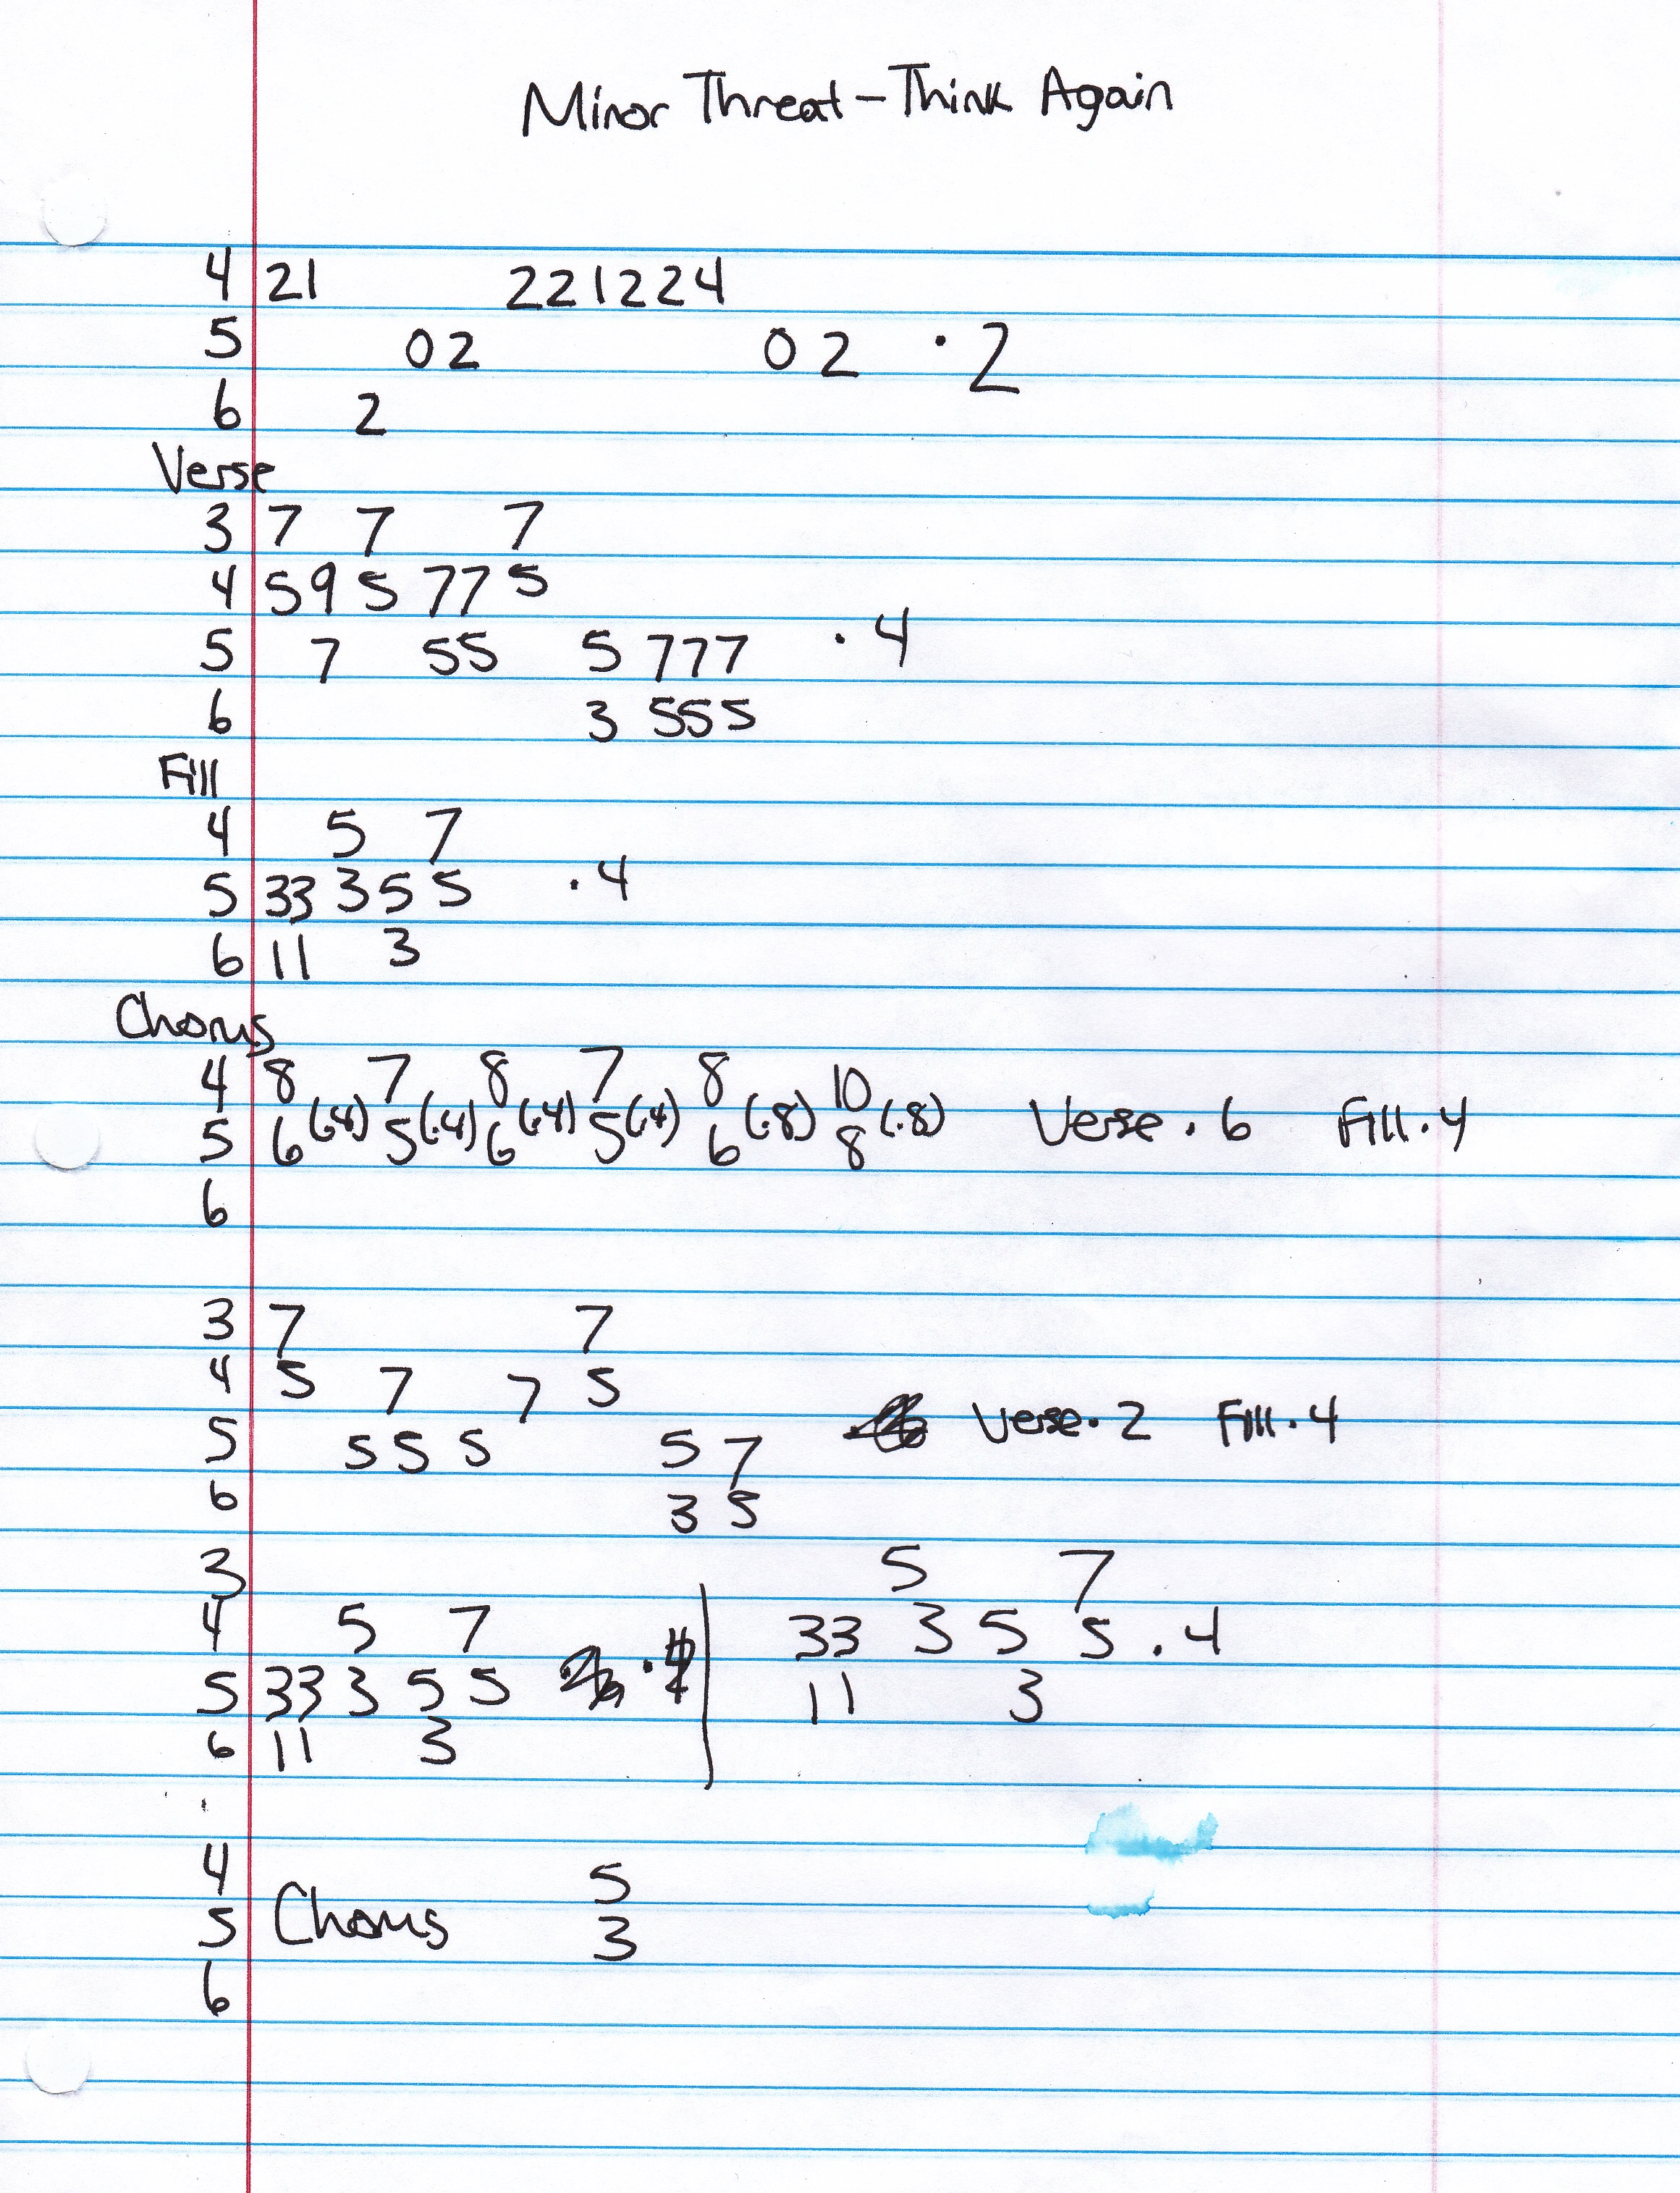 Minor Threat - Think Again
4 21 221224
5 02 02 · 2
6 2
Verse
3 7 7 7
4 59 5 77 5
5 7 55 5 777 · 4
6 3 555
Fill
4 5 7
5 33 3 5 5 · 4
6 11 3
Chorus
4 8 7 8 7 8 10
(·4) (·4) (·4) (·4) (·8) (·8) Verse · 6 Fill · 4
5 6 5 6 5 6 8
6
3 7 7
4 5 7 7 5
Verse · 2 Fill · 4
5 5 5 5 5 7
6 3 5
3 5 7
4 5 7 33 3 5 5 · 4
5 33 3 5 5 11 3
6 11 3
4 5
Chorus
5 3
6